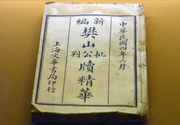 中華民國四年六月
新編
樊山批公判牘精華
上海文華書局印行